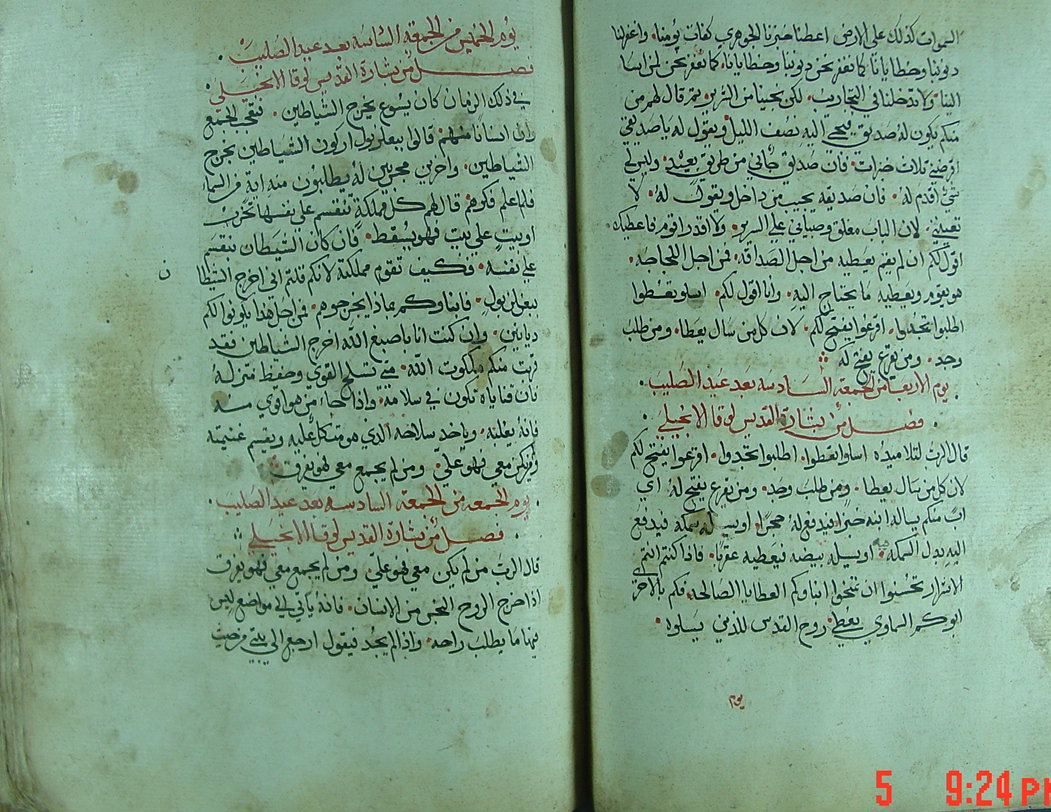 السموات كذلك على الارض اعطنا خبزنا الجوهري كفات يومنا واغفرلنا
ديوننا وخطايانا كما نغفر نحن ديوننا وخطايانا كما نغفر نحن لمن اسا
الينا ولا تدخلنا في التجارب لكن نجينا من الشرير ثم قال لهم من
منكم يكون له صديق فيجي اليه نصف الليل ويقول له يا صديقي
اقرضني ثلاث خبزات فان صديق جاني من طريق بعيد وليس لي
شي اقدم له فان صديقه يجيب من داخل ويقول له لا
تعيني لان الباب مغلق وصبياني على السرير ولا اقدر اقوم فاعطيك
اقول لكم ان لم يقم يعطيه من اجل الصداقة فمن اجل اللجاجه
هو يقوم ويعطيه ما يحتاج اليه وانا اقول لكم اسلو تعطوا
اطلبوا تجدوا اقرعوا يفتح لكم لان كل من سال يعطا ومن طلب
وجد ومن يقرع يفتح له
يوم الاربعا من الجمعة السادسه بعد عيد الصليب
فصل من بشارة القديس لوقا الانجيلي
قال الرب لتلاميذه اسلوا تعطوا اطلبوا تجدوا اقرعوا يفتح لكم
لان كل من سال يعطا ومن طلب وجد ومن يقرع يفتح له اي
اب منكم يساله ابنه خبزا فيدفع له حجرا او يسله سمكه فيدفع
اليه بدل السمكه او يسله بيضه فيعطيه عقربا فاذا كنتم انتم
الاشرار تحسنوا ان تمنحوا ابناوكم العطايا الصالحه فكم بالاحر
ابوكم السماوي يعطي روح القدس للذين يسلوا
يوم
يوم الخميس من الجمعة السادسة بعد عيد الصليب
فصل من بشارة القديس لوقا الانجيلي
في ذلك الزمان كان يسوع يخرج الشياطين فتعجب الجمع
وان اناسا منهم قالوا ببعلزبول اركون الشياطين يخرج
الشياطين واخرين مجربين له يطلبون منه اية من السما
فلما علم فكرهم قال لهم كل مملكة تنقسم على نفسها تخرب
او بيت على بيت فهو يسقط فان كان الشيطان ينقسم
على نفسه فكيف تقوم مملكته لانكم قلتم اني اخرج الشياطا
ن
ببعلزبول فابناوكم بماذا يخرجوهم فمن اجل هذا يكونوا لكم
ديانين وان كنت انا باصبع الله اخرج الشياطين فقد
قربت منكم ملكوت الله متى تسلح القوي وحفظ منزله
فان قناياه تكون في سلامه واذا جا من هو اقوي منه
فانه يغلبه وياخد سلاحه الذي هو متكل عليه ويقسم غنيمته
ومن لم يكن معي فهو علي ومن لم يجمع معي فهو يفرق
يوم الجمعه من الجمعة السادسه بعد عيد الصليب
فصل من بشارة القديس لوقا الانجيلي
قال الرب من لم يكن معي فهو علي ومن لم يجمع معي فهو يفرق
اذا خرج الروح النجس من الانسان فانه ياتي الى مواضع ليس
فيها ما يطلب راحه واذا لم يجد فيقول ارجع الى بيتي من حيث
5 9:24 PM